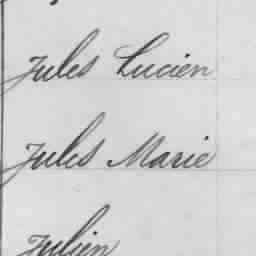 Jules Lucien
Jules Marie
Julien